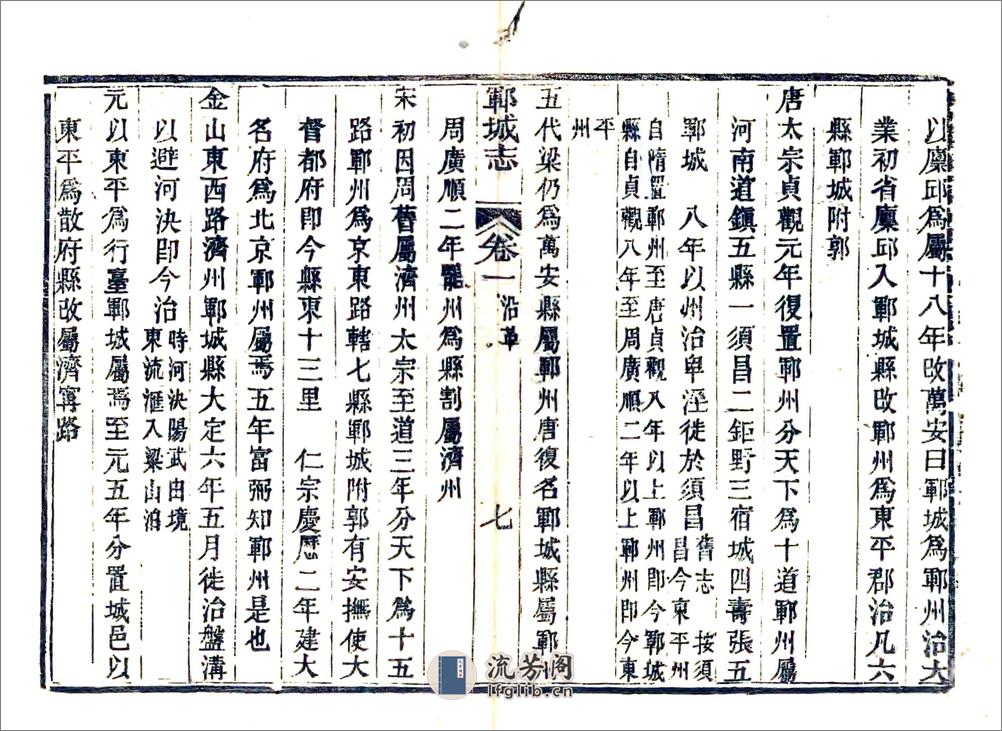 以廩邱爲屬十八年改萬安曰鄆城爲鄆州治大
業初省廩邱入鄆城縣改鄆州爲東平郡治凡六
縣鄆城附郭
唐太宗貞觀元年復置鄆州分天下爲十道鄆州屬
河南道鎮五縣一須昌二鉅野三宿城四壽張五
鄆城 八年以州治卑溼徒於須昌舊志 按須
昌今東平州
自隋置鄆州至唐貞觀八年以上鄆州卽今鄆城
縣自貞觀八年至周廣順二年以上鄆州卽今東
平
州
五代梁仍爲萬安縣屬鄆州唐復名鄆城縣屬鄆
鄆城志 卷一 沿革 七
周廣順二年罷州爲縣割屬濟州
宋初因周舊屬濟州太宗至道三年分天下爲十五
路鄆州爲京東路轄七縣鄆城附郭有安撫使大
督都府卽今縣東十三里 仁宗慶歷二年建大
名府爲北京鄆州屬焉五年富弼知鄆州是也
金山東西路濟州鄆城縣大定六年五月徙治盤溝
以避河決卽今治時河決陽武由境
東流滙入梁山泊
元以東平爲行臺鄆城屬焉至元五年分置城邑以
東平爲散府縣改屬濟寧路
流芳阁
lfglib.cn